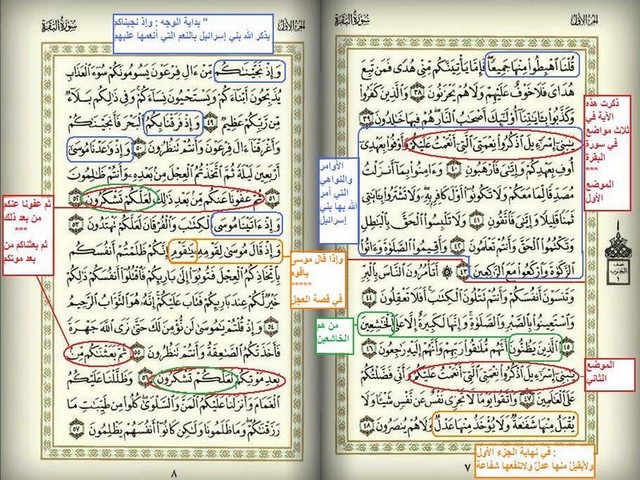 سورة البقرة
الجزء الأول
قُلْنَا ٱهْبِطُوا۟ مِنْهَا جَمِيعًا فَإِمَّا يَأْتِيَنَّكُم مِّنِّى هُدًى فَمَن تَبِعَ
هُدَاىَ فَلَا خَوْفٌ عَلَيْهِمْ وَلَا هُمْ يَحْزَنُونَ ٣٨ وَٱلَّذِينَ كَفَرُوا۟
وَكَذَّبُوا۟ بِـَٔايَٰتِنَآ أُو۟لَٰٓئِكَ أَصْحَٰبُ ٱلنَّارِ هُمْ فِيهَا خَٰلِدُونَ ٣٩
يَٰبَنِىٓ إِسْرَٰٓءِيلَ ٱذْكُرُوا۟ نِعْمَتِىَ ٱلَّتِىٓ أَنْعَمْتُ عَلَيْكُمْ وَأَوْفُوا۟ بِعَهْدِىٓ
أُوفِ بِعَهْدِكُمْ وَإِيَّٰىَ فَٱرْهَبُونِ ٤٠ وَءَامِنُوا۟ بِمَآ أَنزَلْتُ
مُصَدِّقًا لِّمَا مَعَكُمْ وَلَا تَكُونُوٓا۟ أَوَّلَ كَافِرٍۭ بِهِۦ وَلَا تَشْتَرُوا۟ بِـَٔايَٰتِى
ثَمَنًا قَلِيلًا وَإِيَّٰىَ فَٱتَّقُونِ ٤١ وَلَا تَلْبِسُوا۟ ٱلْحَقَّ بِٱلْبَٰطِلِ
وَتَكْتُمُوا۟ ٱلْحَقَّ وَأَنتُمْ تَعْلَمُونَ ٤٢ وَأَقِيمُوا۟ ٱلصَّلَوٰةَ وَءَاتُوا۟
ٱلزَّكَوٰةَ وَٱرْكَعُوا۟ مَعَ ٱلرَّٰكِعِينَ ٤٣ أَتَأْمُرُونَ ٱلنَّاسَ بِٱلْبِرِّ
وَتَنسَوْنَ أَنفُسَكُمْ وَأَنتُمْ تَتْلُونَ ٱلْكِتَٰبَ أَفَلَا تَعْقِلُونَ
٤٤ وَٱسْتَعِينُوا۟ بِٱلصَّبْرِ وَٱلصَّلَوٰةِ وَإِنَّهَا لَكَبِيرَةٌ إِلَّا عَلَى ٱلْخَٰشِعِينَ
٤٥ ٱلَّذِينَ يَظُنُّونَ أَنَّهُم مُّلَٰقُوا۟ رَبِّهِمْ وَأَنَّهُمْ إِلَيْهِ رَٰجِعُونَ ٤٦
يَٰبَنِىٓ إِسْرَٰٓءِيلَ ٱذْكُرُوا۟ نِعْمَتِىَ ٱلَّتِىٓ أَنْعَمْتُ عَلَيْكُمْ وَأَنِّى فَضَّلْتُكُمْ
عَلَى ٱلْعَٰلَمِينَ ٤٧ وَٱتَّقُوا۟ يَوْمًا لَّا تَجْزِى نَفْسٌ عَن نَّفْسٍ شَيْـًٔا وَلَا
يُقْبَلُ مِنْهَا شَفَٰعَةٌ وَلَا يُؤْخَذُ مِنْهَا عَدْلٌ وَلَا هُمْ يُنصَرُونَ ٤٨
٧
ذكرت هذه
الآية في
ثلاث مواضع
في سورة
البقرة
***
الموضع
الأول
نصف
الحزب
١
الموضع
الثاني
الأوامر
والنواهي
التي أمر
الله بها بني
إسرائيل
من هم
الخاشعين
في نهاية الجزء الأول :
ولايقبل منها عدل ولاتنفعها شفاعة
سورة البقرة
الجزء الأول
" بداية الوجه : وإذ نجيناكم
يذكر الله بني إسرائيل بالنعم التي أنعمها عليهم
وَإِذْ نَجَّيْنَٰكُم مِّنْ ءَالِ فِرْعَوْنَ يَسُومُونَكُمْ سُوٓءَ ٱلْعَذَابِ
يُذَبِّحُونَ أَبْنَآءَكُمْ وَيَسْتَحْيُونَ نِسَآءَكُمْ وَفِى ذَٰلِكُم بَلَآءٌ
مِّن رَّبِّكُمْ عَظِيمٌ ٤٩ وَإِذْ فَرَقْنَا بِكُمُ ٱلْبَحْرَ فَأَنجَيْنَٰكُمْ
وَأَغْرَقْنَآ ءَالَ فِرْعَوْنَ وَأَنتُمْ تَنظُرُونَ ٥٠ وَإِذْ وَٰعَدْنَا مُوسَىٰٓ
أَرْبَعِينَ لَيْلَةً ثُمَّ ٱتَّخَذْتُمُ ٱلْعِجْلَ مِنۢ بَعْدِهِۦ وَأَنتُمْ ظَٰلِمُونَ
٥١ ثُمَّ عَفَوْنَا عَنكُم مِّنۢ بَعْدِ ذَٰلِكَ لَعَلَّكُمْ تَشْكُرُونَ ٥٢
وَإِذْ ءَاتَيْنَا مُوسَى ٱلْكِتَٰبَ وَٱلْفُرْقَانَ لَعَلَّكُمْ تَهْتَدُونَ ٥٣
وَإِذْ قَالَ مُوسَىٰ لِقَوْمِهِۦ يَٰقَوْمِ إِنَّكُمْ ظَلَمْتُمْ أَنفُسَكُم
بِٱتِّخَاذِكُمُ ٱلْعِجْلَ فَتُوبُوٓا۟ إِلَىٰ بَارِئِكُمْ فَٱقْتُلُوٓا۟ أَنفُسَكُمْ ذَٰلِكُمْ
خَيْرٌ لَّكُمْ عِندَ بَارِئِكُمْ فَتَابَ عَلَيْكُمْ إِنَّهُۥ هُوَ ٱلتَّوَّابُ ٱلرَّحِيمُ
٥٤ وَإِذْ قُلْتُمْ يَٰمُوسَىٰ لَن نُّؤْمِنَ لَكَ حَتَّىٰ نَرَى ٱللَّهَ جَهْرَةً
فَأَخَذَتْكُمُ ٱلصَّٰعِقَةُ وَأَنتُمْ تَنظُرُونَ ٥٥ ثُمَّ بَعَثْنَٰكُم مِّنۢ
بَعْدِ مَوْتِكُمْ لَعَلَّكُمْ تَشْكُرُونَ ٥٦ وَظَلَّلْنَا عَلَيْكُمُ
ٱلْغَمَامَ وَأَنزَلْنَا عَلَيْكُمُ ٱلْمَنَّ وَٱلسَّلْوَىٰ كُلُوا۟ مِن طَيِّبَٰتِ مَا
رَزَقْنَٰكُمْ وَمَا ظَلَمُونَا وَلَٰكِن كَانُوٓا۟ أَنفُسَهُمْ يَظْلِمُونَ ٥٧
٨
ثم عفونا عنكم
من بعد ذلك
***
ثم بعثناكم من
بعد موتكم
وإذا قال موسى
ياقوم
*****
في قصة العجل